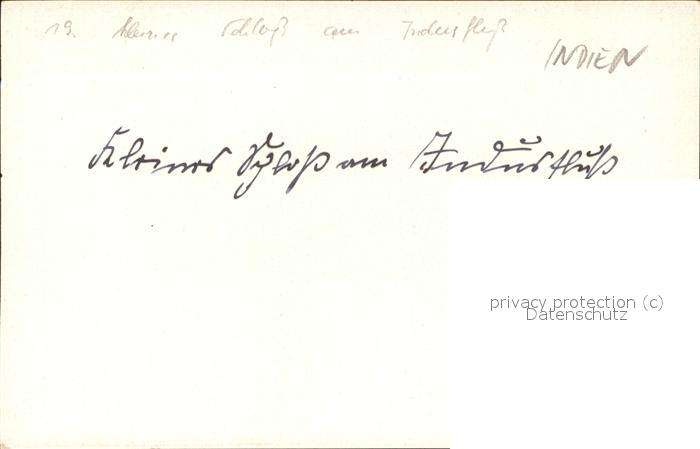 19. Kleines Schloß am Indusfluß
INDIEN
Kleines Schloß am Indusfluß
privacy protection (c)
Datenschutz